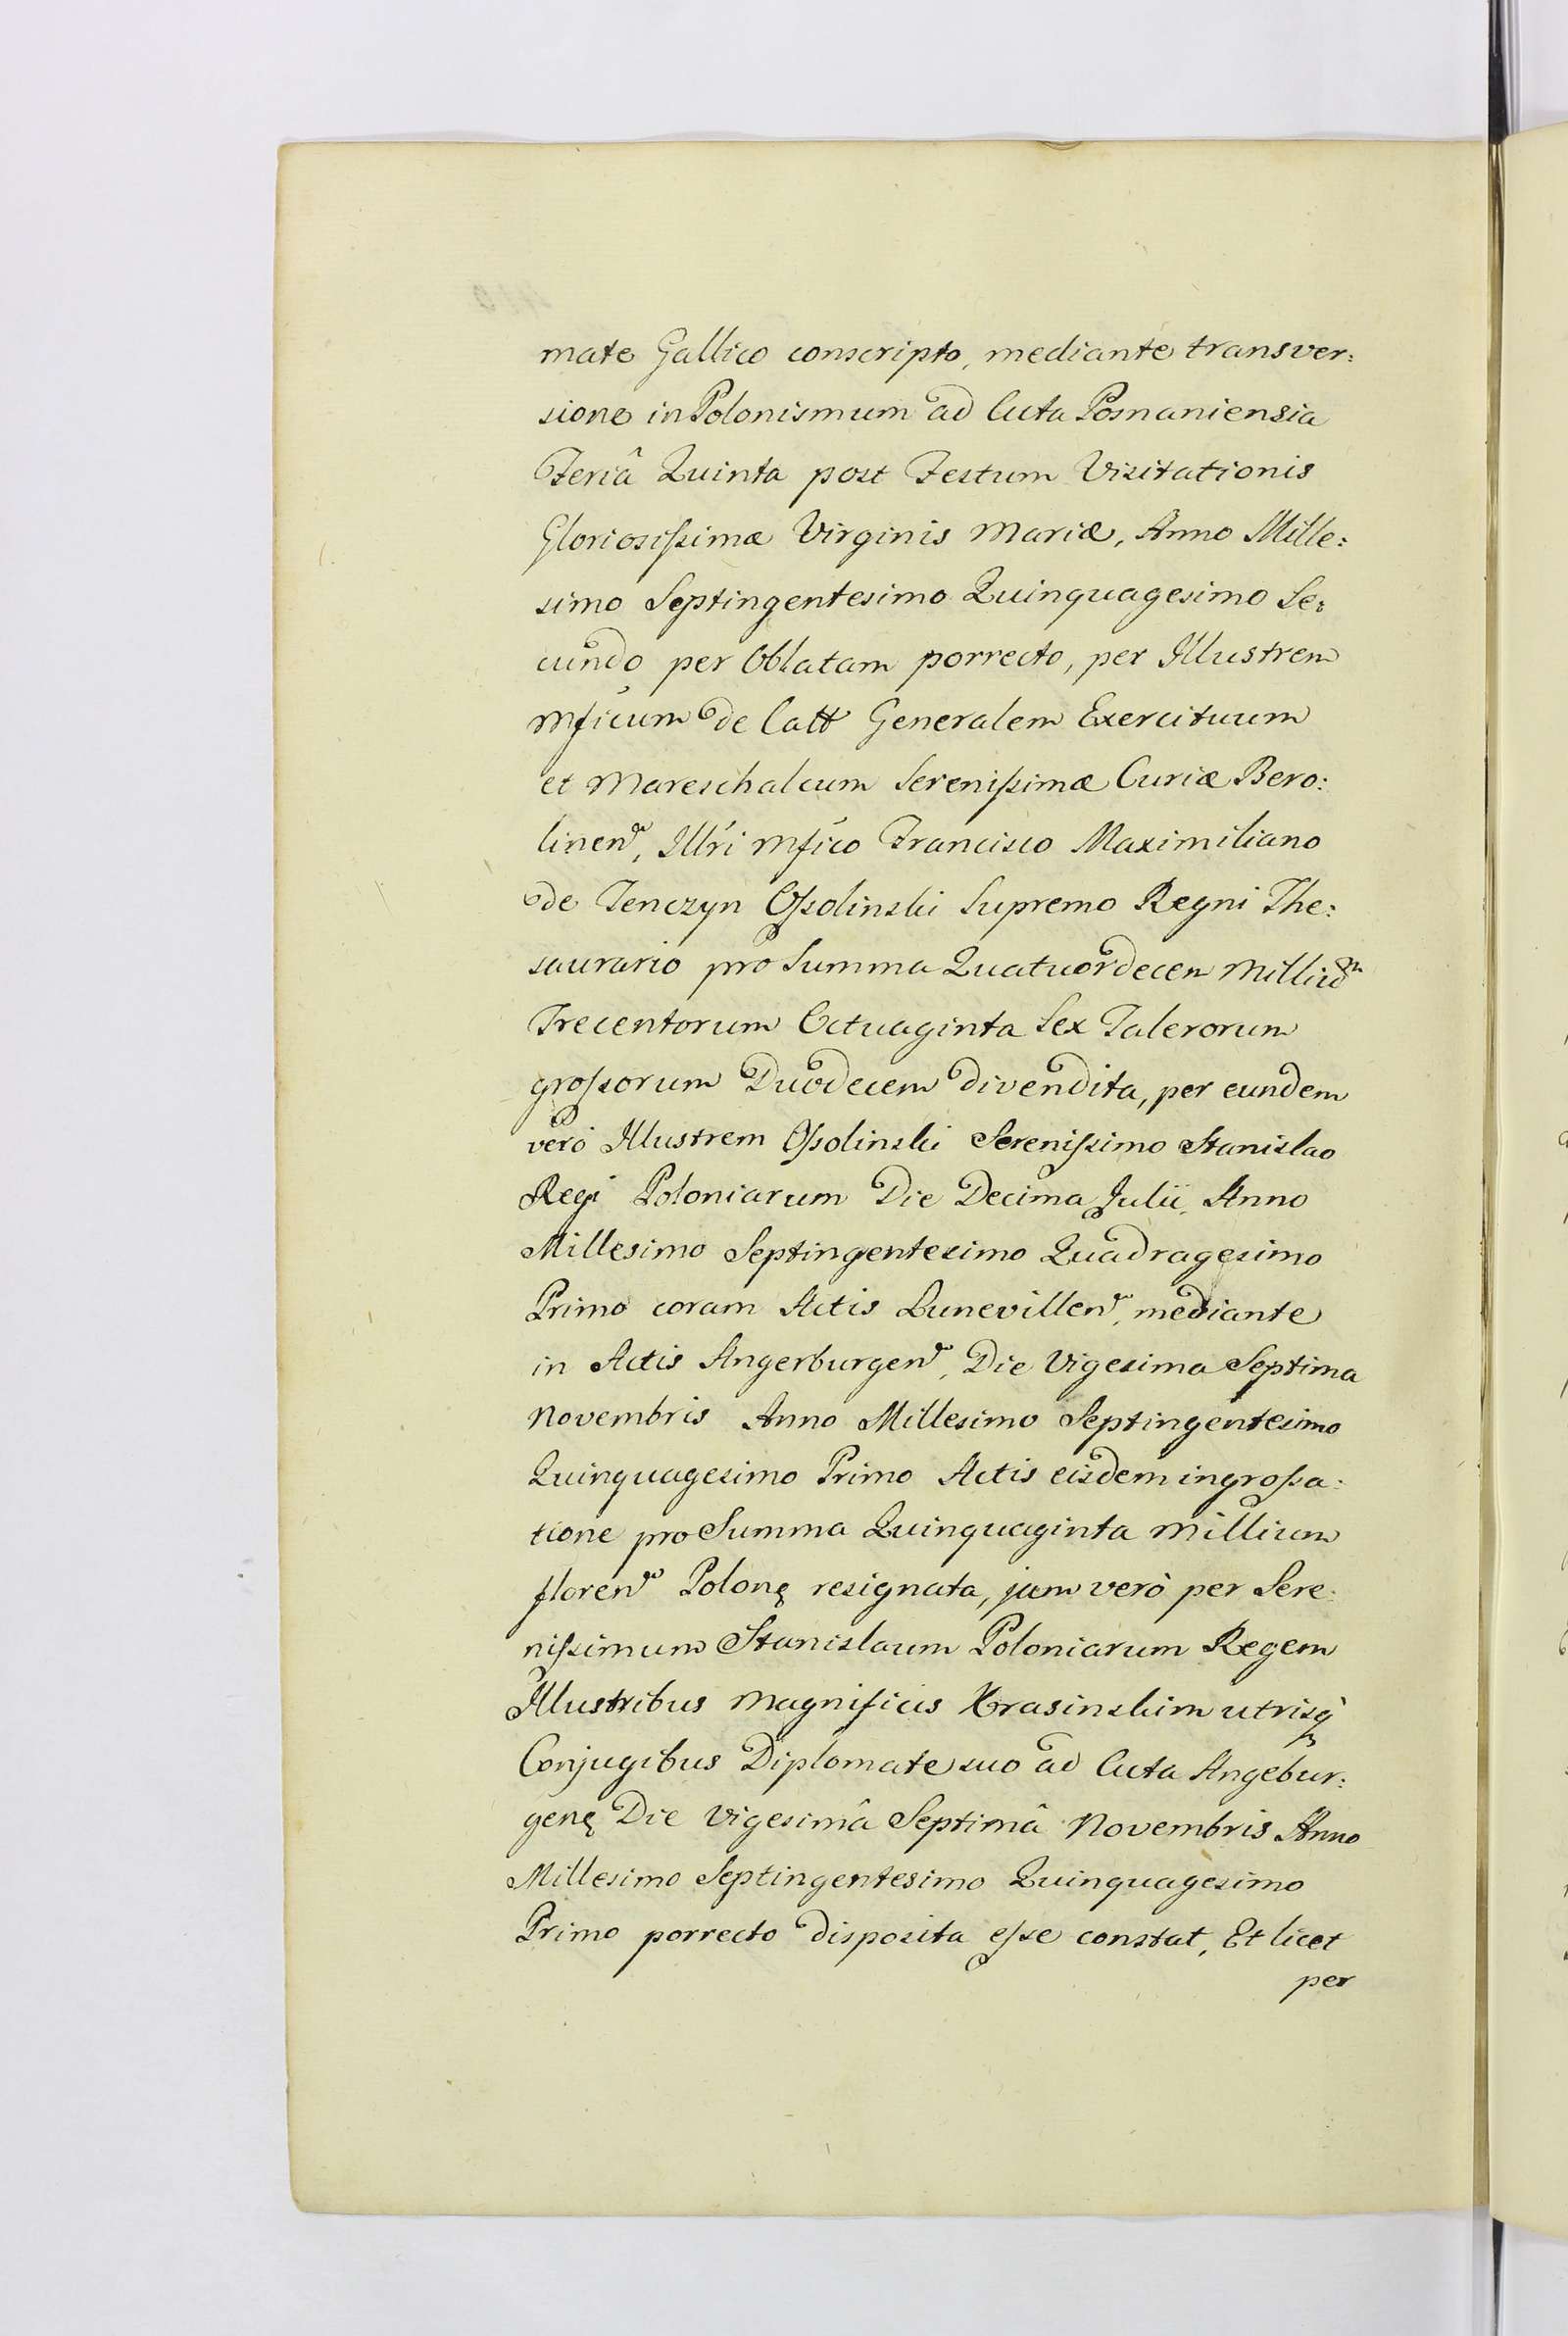 mate Gallico conscripto, mediante transver:
sione in Polonismum ad Acta Posnaniensia
Feriâ Quinta post Festum Visitationis
Gloriosissimæ Virginis Mariæ, Anno Mille:
simo Septingentesimo Quinquagesimo Se:
cundo per Oblatam porrecto, per Illustrem
Mficum de Catt Generalem Exercituum
et Mareschalcum Serenissimæ Curiæ Bero:
linen, Illri Mfico Francisco Maximiliano
de Tenczyn Ossolinski Supremo Regni The:
saurario pro Summa Quatuordecem Milliū
Trecentorum Octuaginta Sex Talerorum
grossorum Duodecem divendita, per eundem
verò Illustrem Ossolinski Serenissimo Stanislao
Regi Poloniarum Die Decima Julii Anno
Millesimo Septingentesimo Quadragesimo
Primo coram Actis Lunevillen, mediante
in Actis Angerburgen, Die Vigesima Septima
Novembris Anno Millesimo Septingentesimo
Quinquagesimo Primo Actis eisdem ingrossa:
tione pro Summa Quinquaginta Millium
floren Polonę resignata, jam verò per Sere:
nissimum Stanislaum Poloniarum Regem
Illustribus Magnificis Krasinskim utrisq̀
Conjugibus Diplomate suo ad Acta Angebur:
genę Die Vigesimâ Septimâ Novembris Anno
Millesimo Septingentesimo Quinquagesimo
Primo porrecto disposita esse constat, Et licet
per